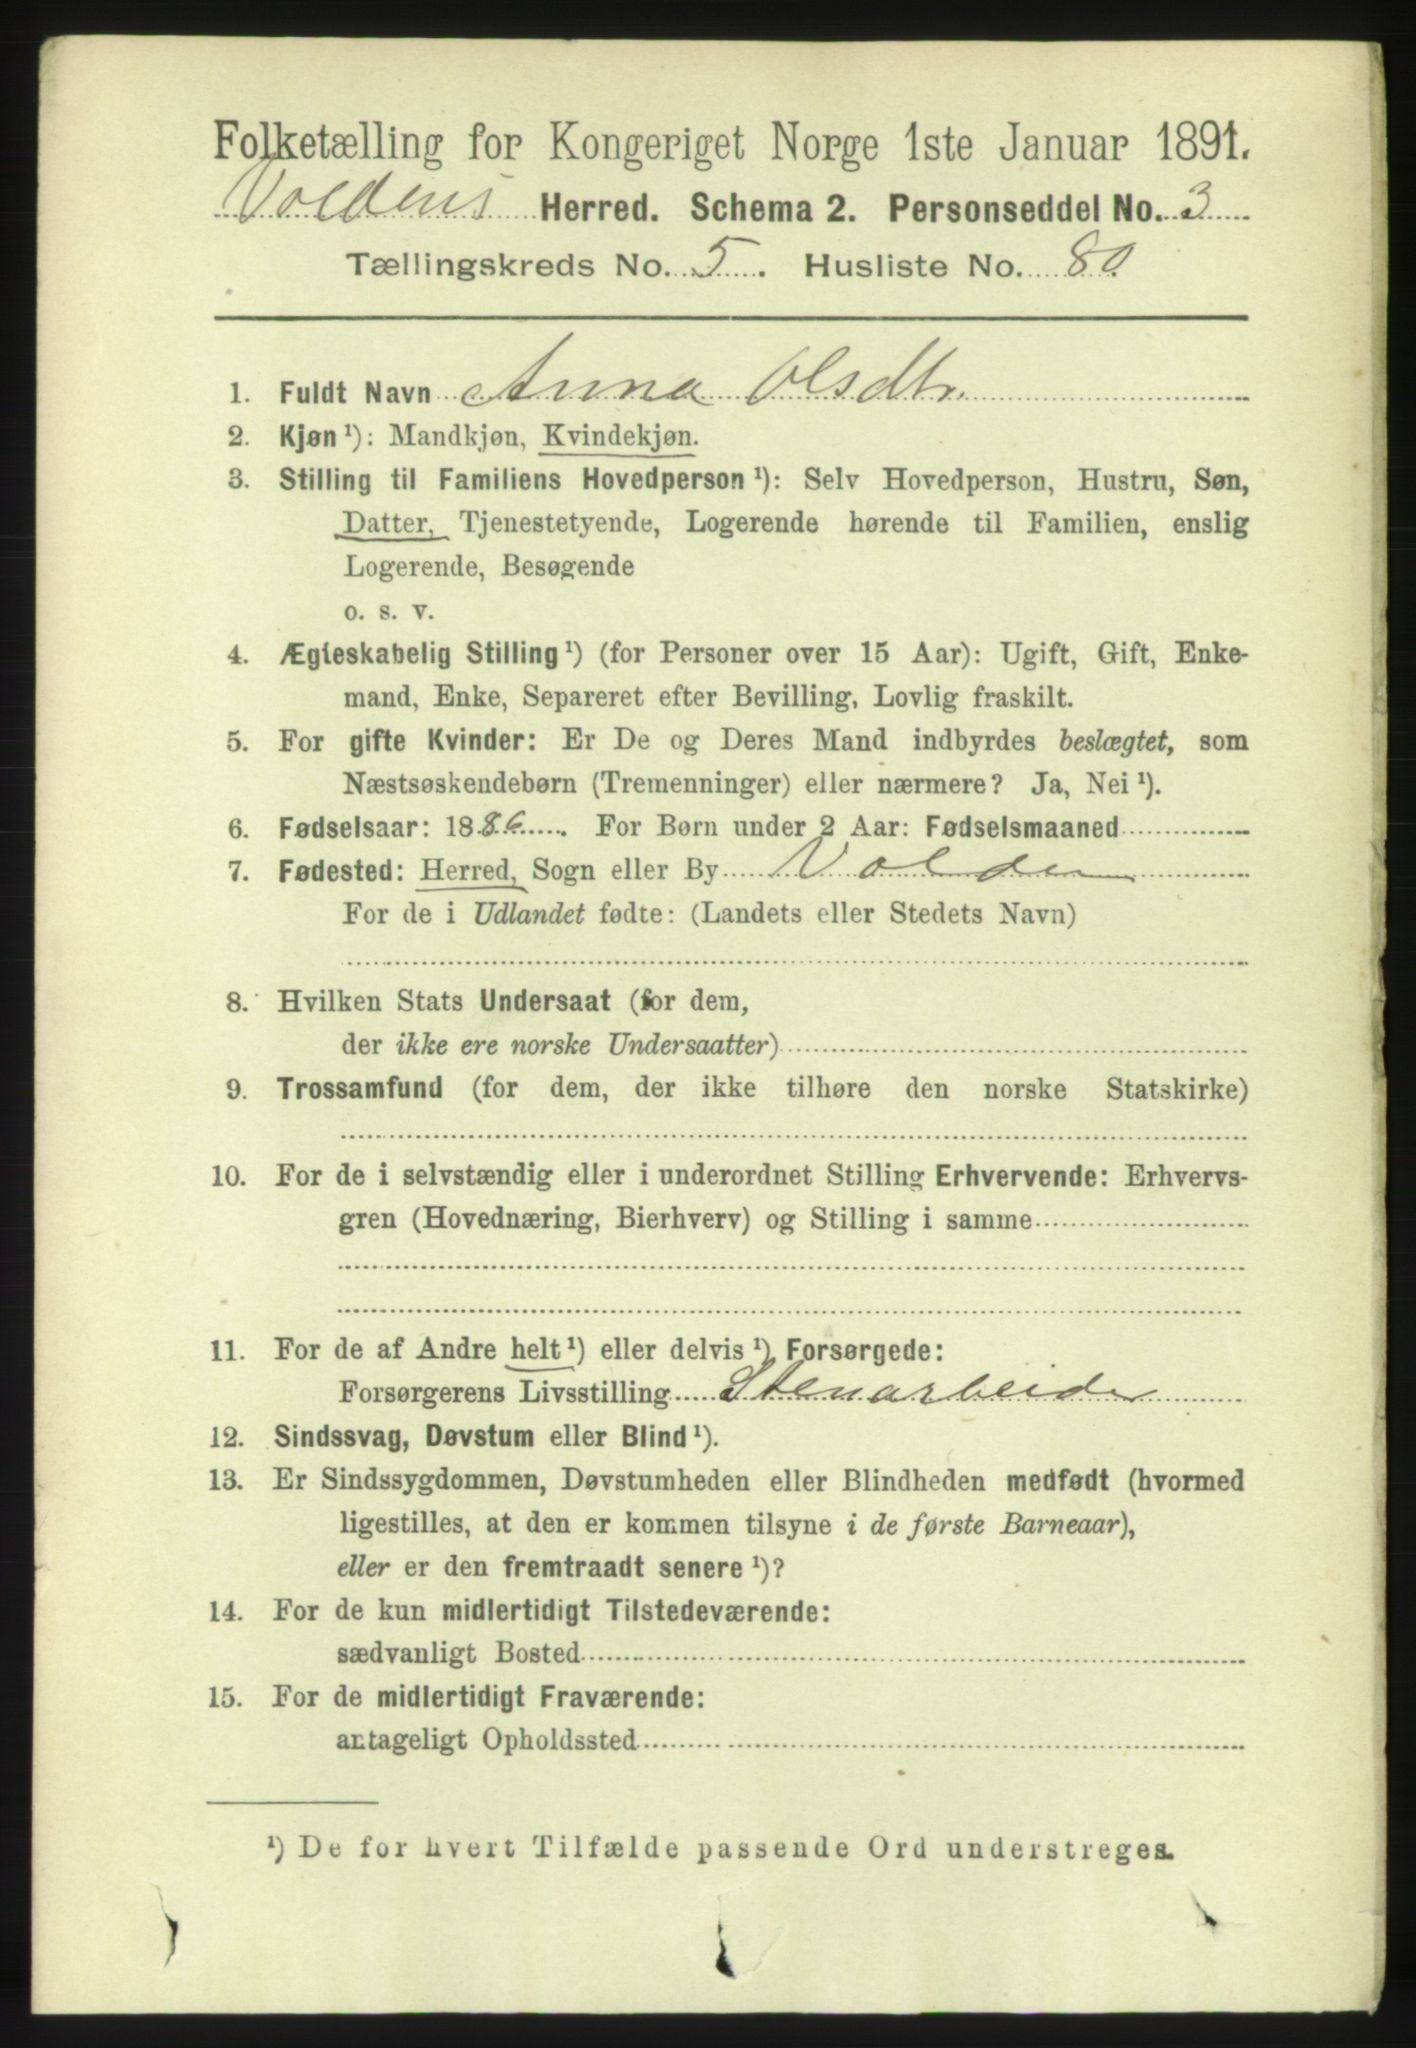 Folketælling for Kongeriget Norge 1ste Januar 1891.
Voldens Herred. Schema 2. Personseddel No. 3
Tællingskreds No. 5. Husliste No. 80.
1. Fuldt Navn Anna Olsdtr.
2. Kjøn ¹): Mandkjøn, Kvindekjøn.
3. Stilling til Familiens Hovedperson ¹): Selv Hovedperson, Hustru, Søn,
Datter, Tjenestetyende, Logerende hørende til Familien, enslig
Logerende, Besøgende
o. s. v.
4. Ægteskabelig Stilling ¹) (for Personer over 15 Aar): Ugift, Gift, Enke-
mand, Enke, Separeret efter Bevilling, Lovlig fraskilt.
5. For gifte Kvinder: Er De og Deres Mand indbyrdes beslægtet, som
Næstsøskendebørn (Tremenninger) eller nærmere? Ja, Nei ¹).
6. Fødselsaar: 1886. For Børn under 2 Aar: Fødselsmaaned
7. Fødested: Herred, Sogn eller By Volden
For de i Udlandet fødte: (Landets eller Stedets Navn)
8. Hvilken Stats Undersaat (for dem,
der ikke ere norske Undersaatter)
9. Trossamfund (for dem, der ikke tilhøre den norske Statskirke)
10. For de i selvstændig eller i underordnet Stilling Erhvervende: Erhvervs-
gren (Hovednæring, Bierhverv) og Stilling i samme
11. For de af Andre helt ¹) eller delvis ¹) Forsørgede:
Forsørgerens Livsstilling Stenarbeider
12. Sindssvag, Døvstum eller Blind ¹).
13. Er Sindssygdommen, Døvstumheden eller Blindheden medfødt (hvormed
ligestilles, at den er kommen tilsyne i de første Barneaar),
eller er den fremtraadt senere ¹)?
14. For de kun midlertidigt Tilstedeværende:
sædvanligt Bosted
15. For de midlertidigt Fraværende:
antageligt Opholdssted
¹) De for hvert Tilfælde passende Ord understreges.